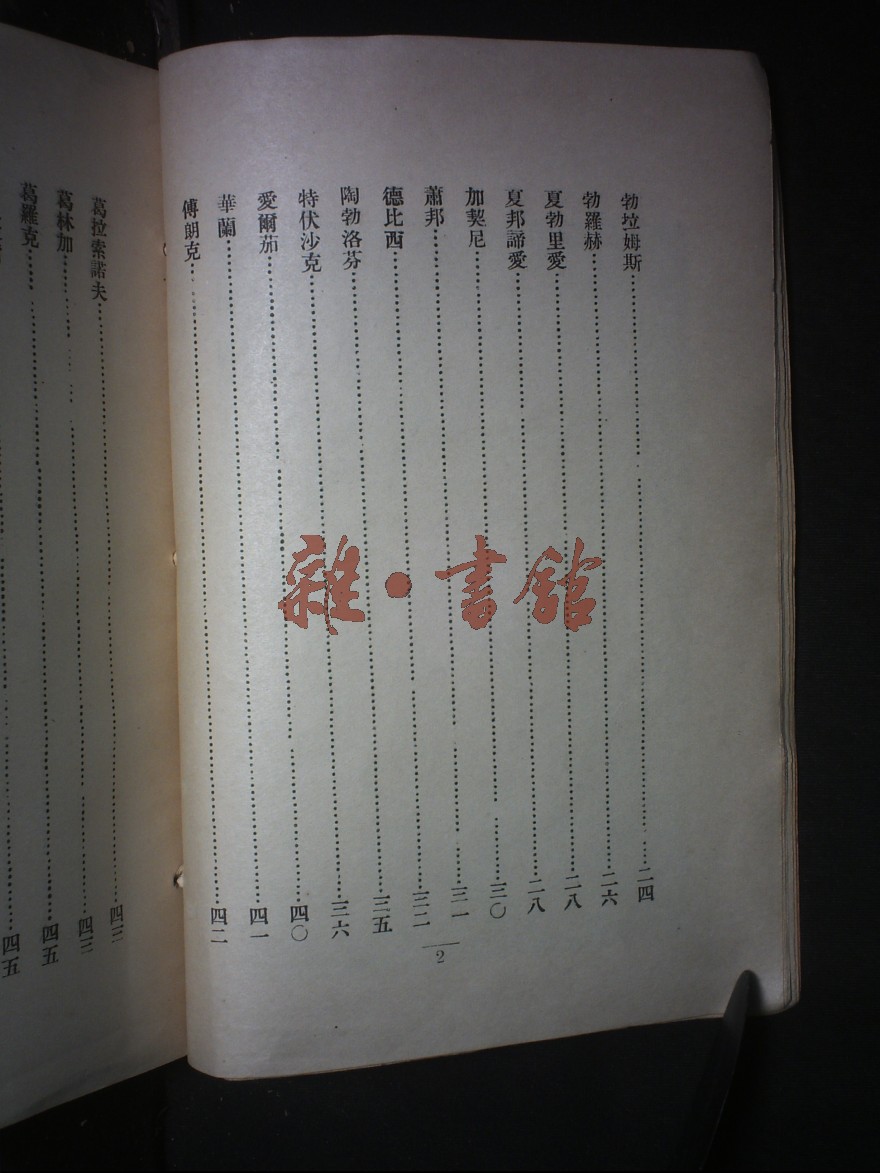 勃垃姆斯……二四
勃羅赫……二六
夏勃里愛……二八
夏邦諦愛……二八
加契尼……三〇
蕭邦……三一
德比西……三二
陶勃洛芬……三五
特伏沙克……三六
愛爾茄……四〇
華蘭……四一
傅朗克……四二
2
葛拉索諾夫……四三
葛林加……四三
葛羅克……四五
四五
雜·書館